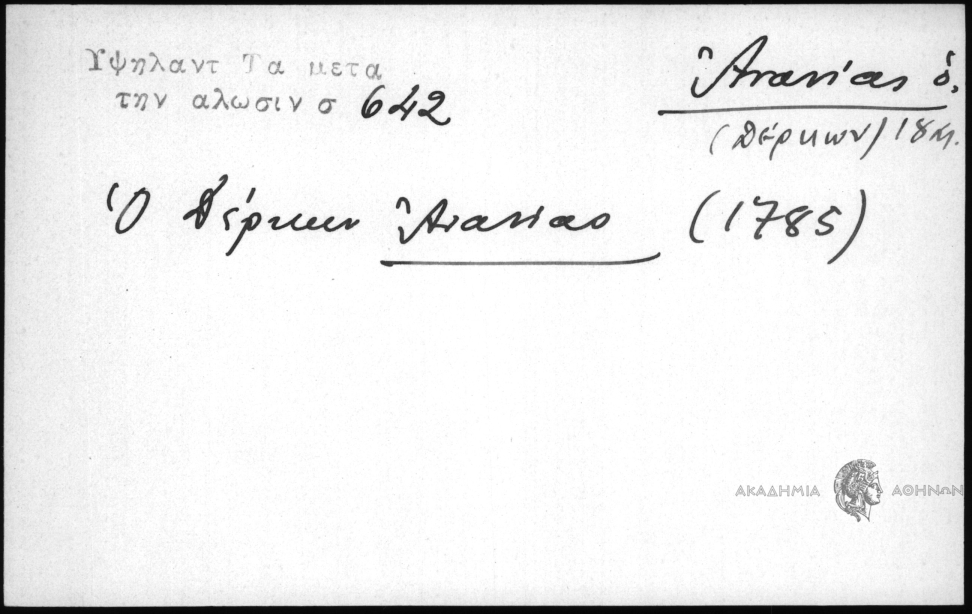 Υψηλαντ Τα μετα
την αλωσιν σ 642
Ἀνανίας ὁ.
(Δέρκων) 18 αι.
Ὁ Δέρκων Ἀνανίας (1785)
ΑΚΑΔΗΜΙΑ ΑΘΗΝΩΝ